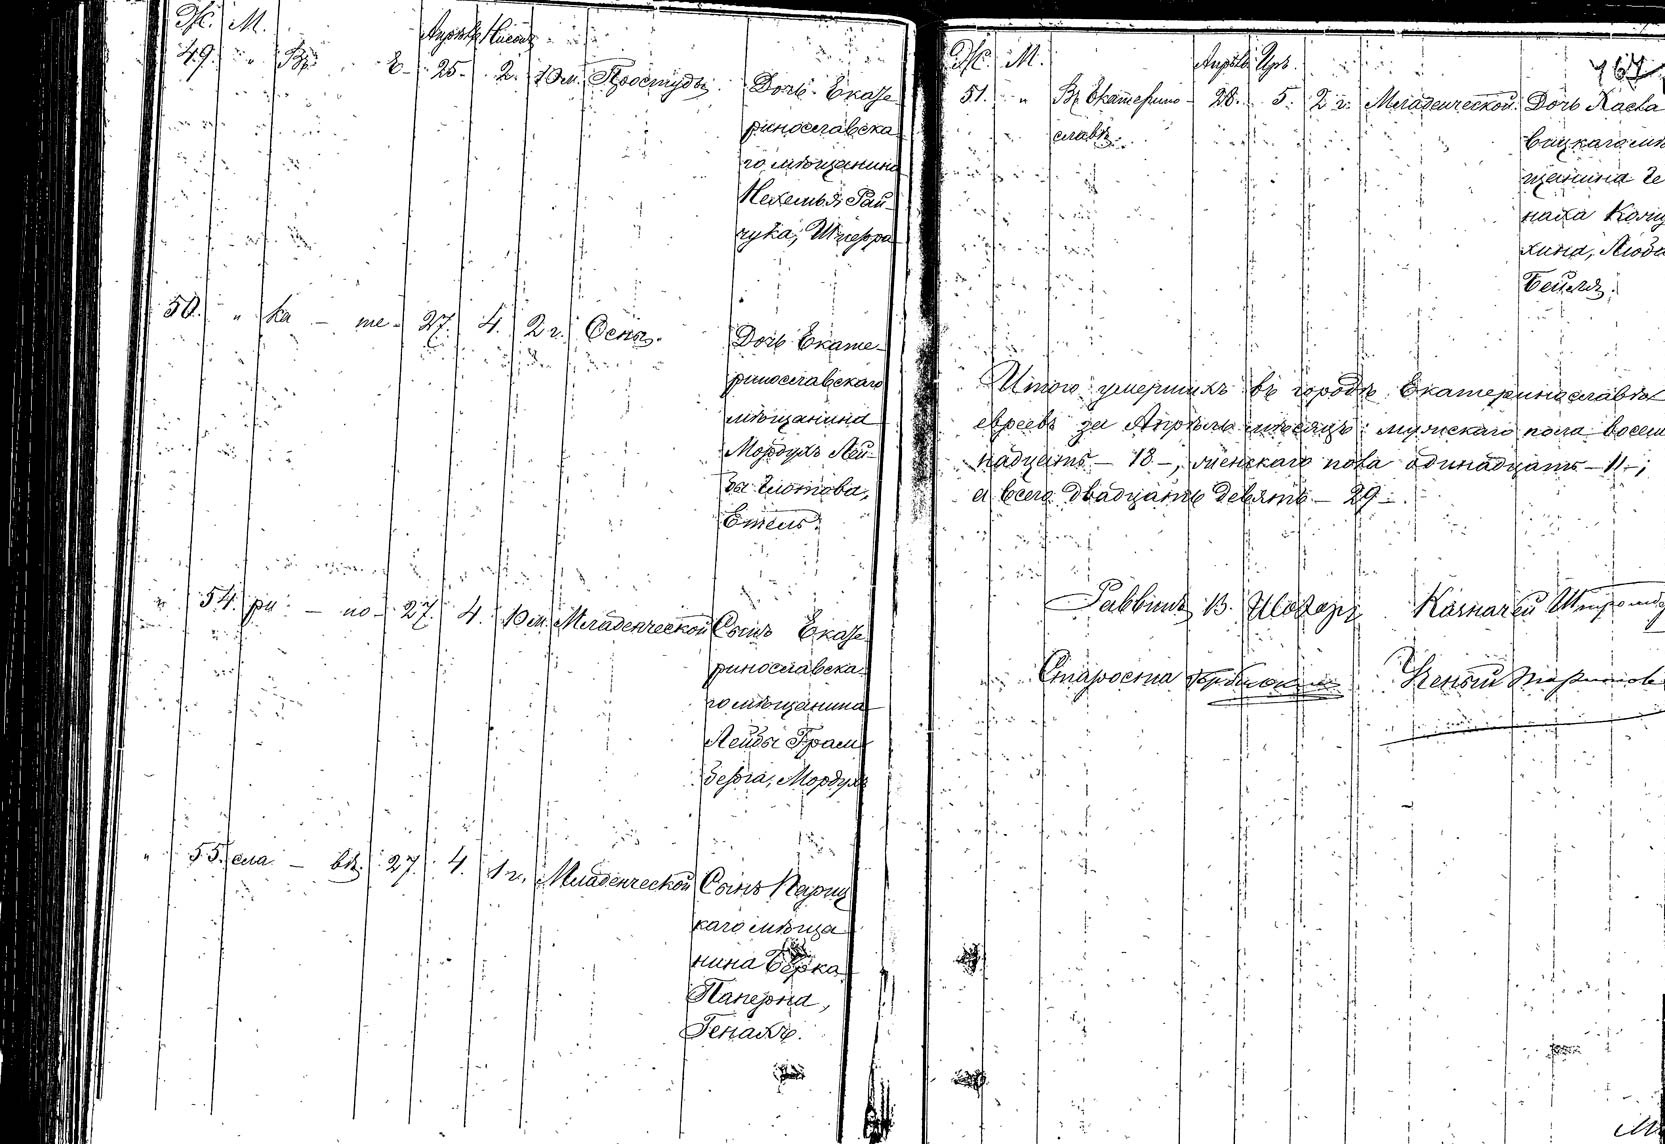 Ж. М. Апрѣль Нисонъ
49. " Въ Е- 25. 2. 10 м. Простуды. Дочь Екате-
ринославска-
го мѣщанина
Нехемья Рай-
чука, Шпепра
50. " ка - те- 27. 4. 2 г. Оспы. Дочь Екате-
ринославскаго
мѣщанина
Мордухъ Лей-
бы
Етель.
" 54. ри - но- 27. 4. 10 м. Младенческой Сынъ Екате-
ринославска-
го мѣщанина
Лейбы Грам-
берга, Мордухъ
" 55. сла - вѣ. 27. 4. 1 г. Младенческой Сынъ Париц
каго мѣща-
нина Берка
Паперна,
Генахъ.
Ж. М. Апрѣль Іръ
51. " Въ Екатерино- 28. 5. 2 г. Младенческой Дочь Хасла
славѣ. вицкаго мѣ
щанина Ге
наха
хина, Люба
Бейля.
Итого умершихъ въ городѣ Екатеринославѣ
евреевъ за Апрѣль мѣсяцъ: мужскаго пола восем
надцать - 18 -, женскаго пола одинадцать - 11 -;
а всего двадцать девять - 29 -
Раввинъ В. Шахоръ Казначей
Староста Ученый